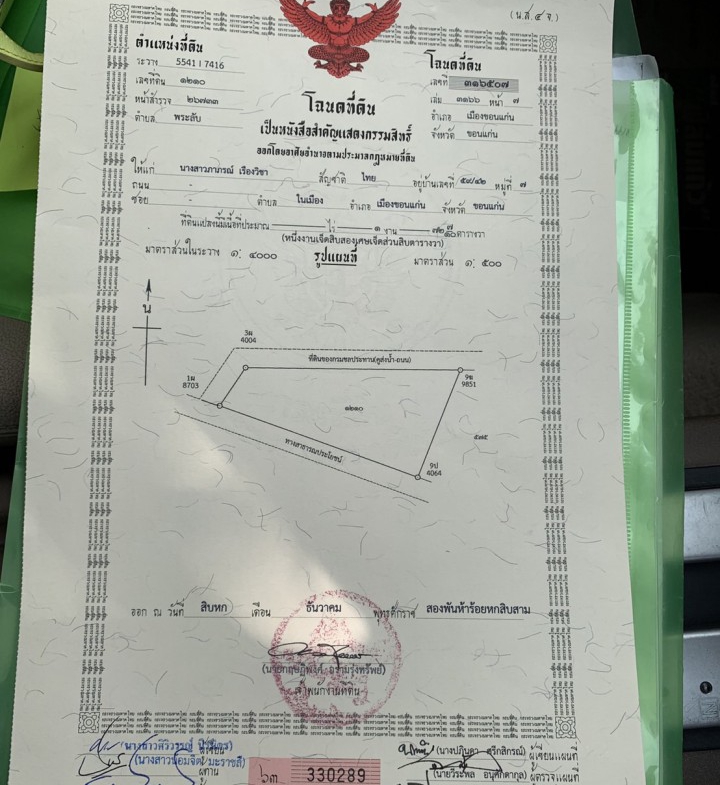 (น.ส. ๔ จ.)
ตำแหน่งที่ดิน
ระวาง 5541 I 7416
เลขที่ดิน ๑๒๑๐
หน้าสำรวจ ๒๖๗๓๓
ตำบล พระลับ
โฉนดที่ดิน
เลขที่ ๓๑๖๕๐๗
เล่ม ๓๑๖๖ หน้า ๗
อำเภอ เมืองขอนแก่น
จังหวัด ขอนแก่น
โฉนดที่ดิน
เป็นหนังสือสำคัญแสดงกรรมสิทธิ์
ออกโดยอาศัยอำนาจตามประมวลกฎหมายที่ดิน
ให้แก่ นางสาวภาภรณ์ เรืองวิชา สัญชาติ ไทย อยู่บ้านเลขที่ ๕๙/๔๒ หมู่ที่ ๗
ถนน -
ซอย - ตำบล ในเมือง อำเภอ เมืองขอนแก่น จังหวัด ขอนแก่น
ที่ดินแปลงนี้มีเนื้อที่ประมาณ - ไร่ ๑ งาน ตารางวา
(หนึ่งงานเจ็ดสิบสองเศษเจ็ดส่วนสิบตารางวา)
มาตราส่วนในระวาง ๑: ๔๐๐๐ รูปแผนที่ มาตราส่วน ๑: ๕๐๐
น
3ผ
4004
ที่ดินของกรมชลประทาน(คูส่งน้ำ-ถนน)
1ผ
8703
9ช
9851
๑๒๑๐
๕๗๕
ทางสาธารณประโยชน์
9ป
4064
ออก ณ วันที่ สิบหก เดือน ธันวาคม พุทธศักราช สองพันห้าร้อยหกสิบสาม
เจ้าพนักงานที่ดิน
ผู้เขียน
(นางสาวน้อมจิต มะราชสี) ผู้ทาน
๖๓ 330289
(นางปฏินดา สุริกสิกรณ์) ผู้เขียนแผนที่
(นายวีระพล อนุศักดากุล) ผู้ตรวจแผนที่